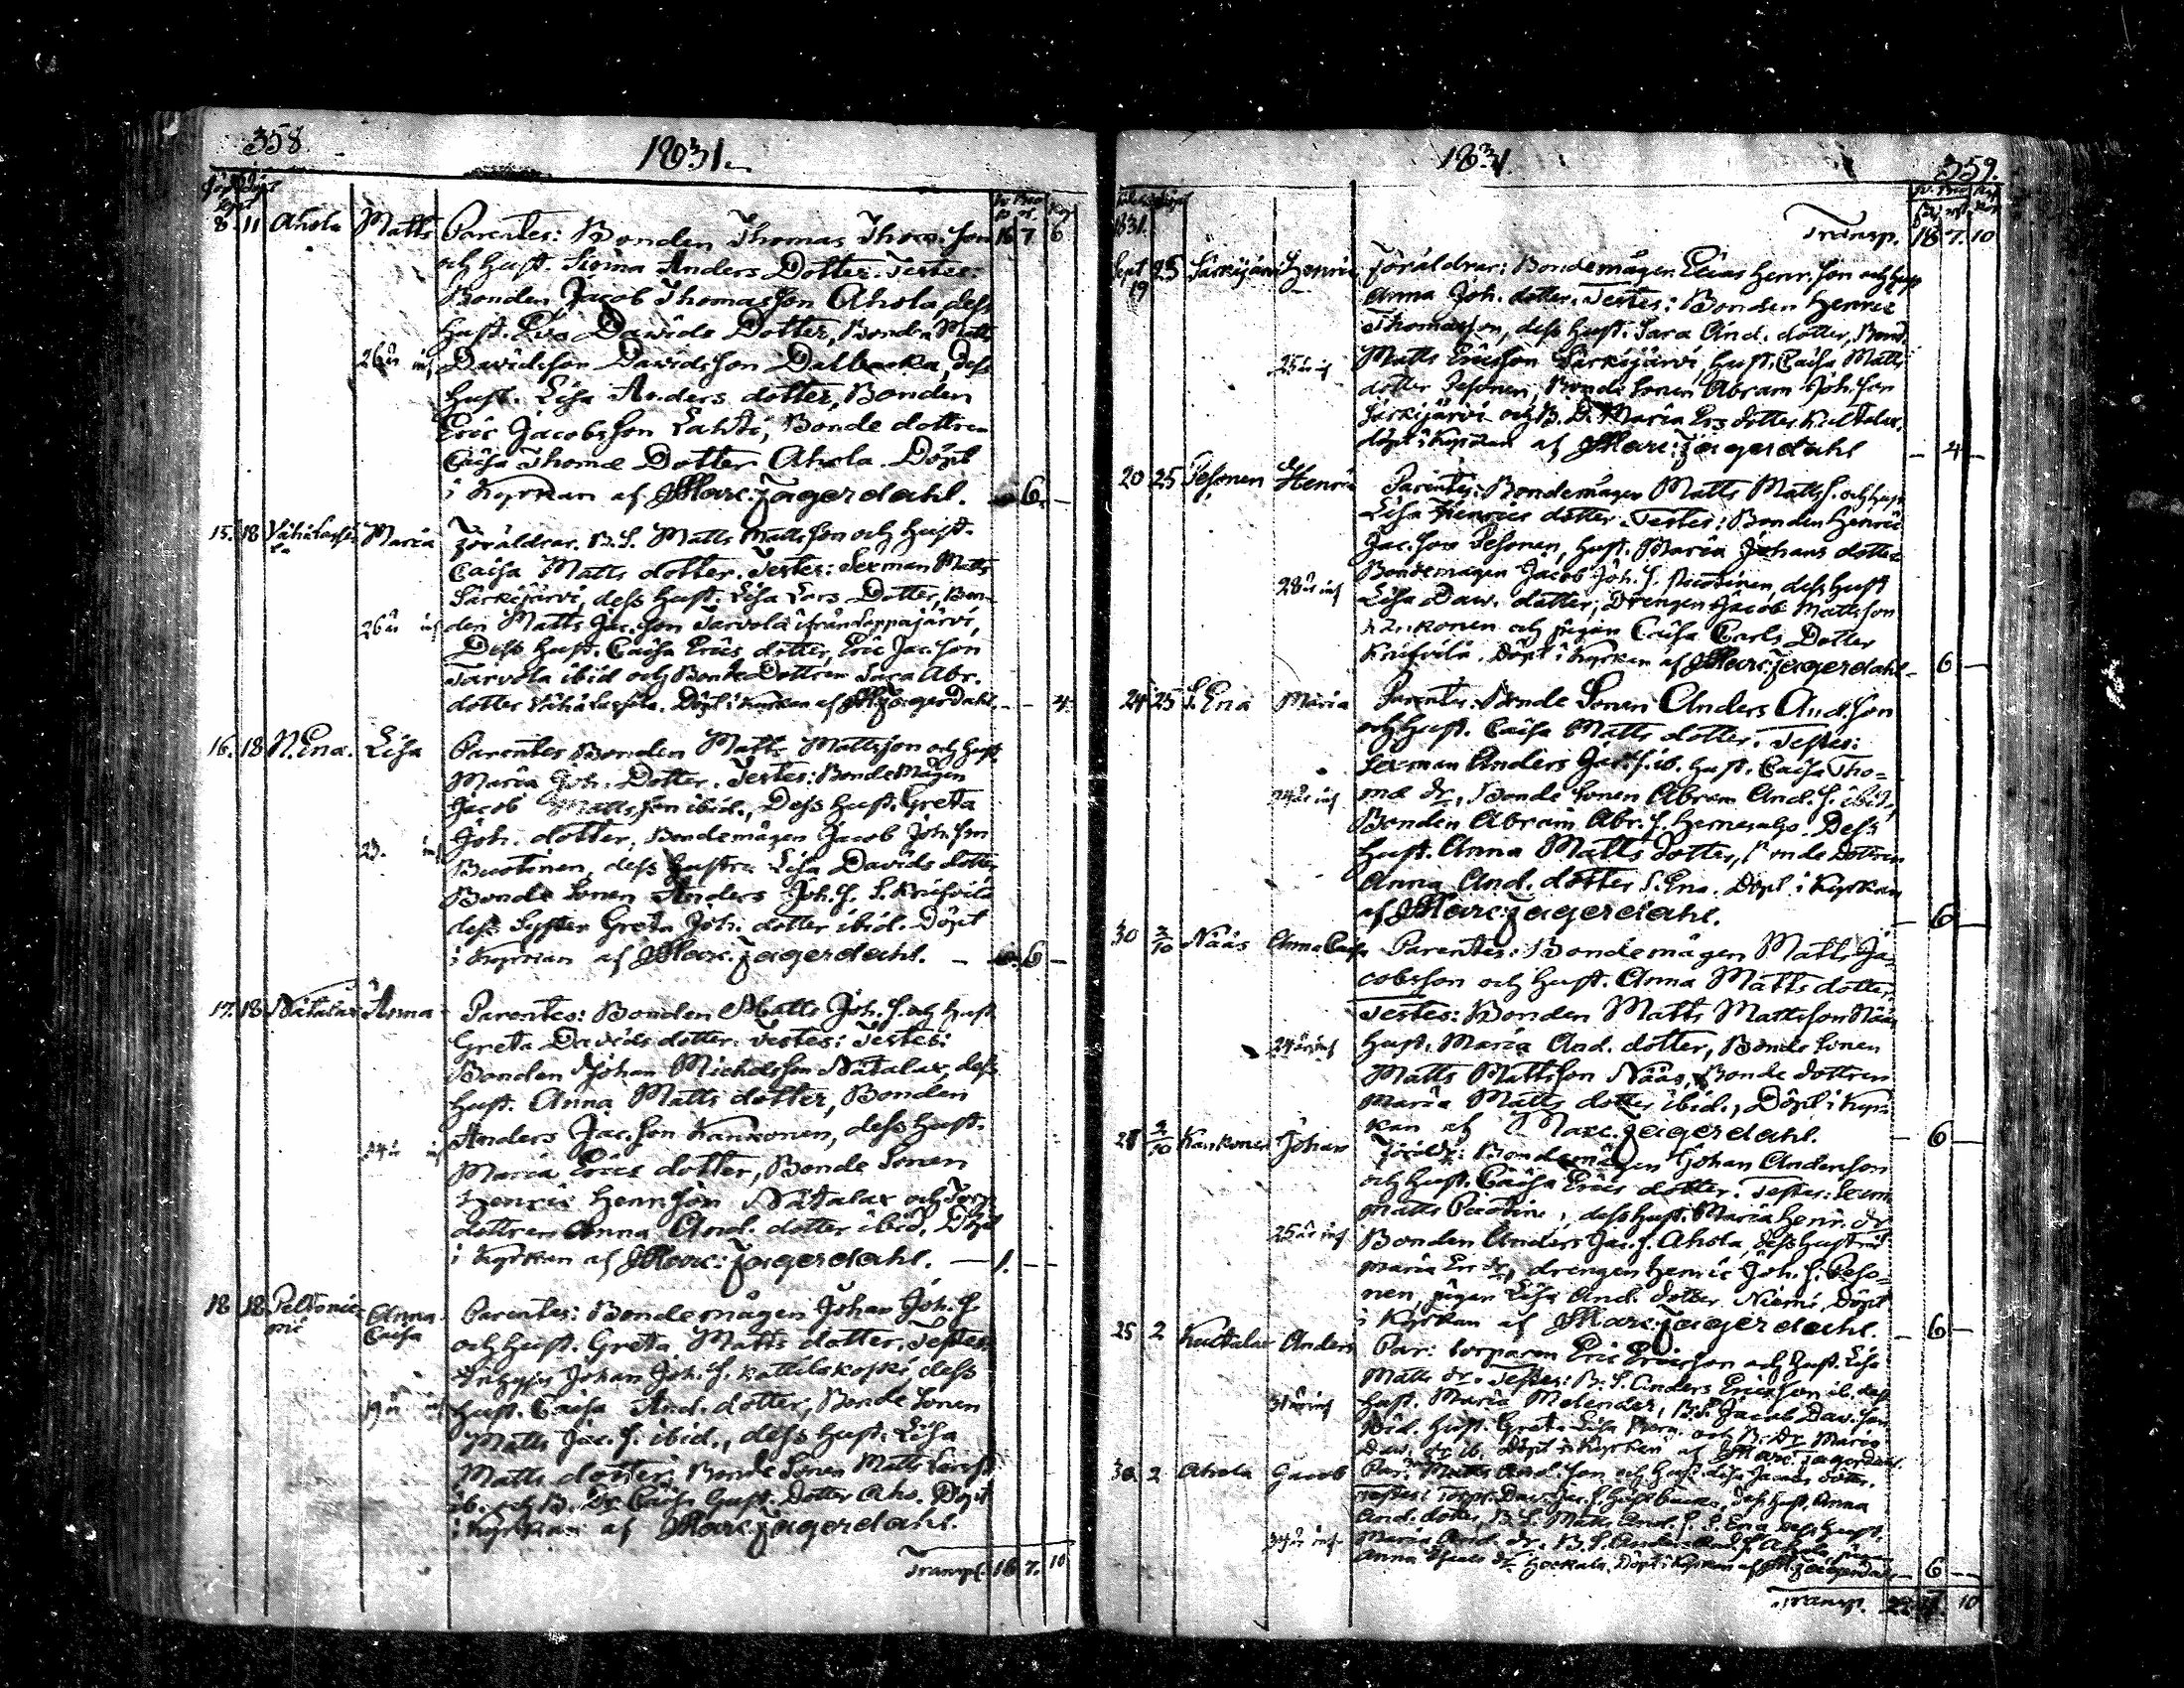 358
1831.
Sept
8. 11 Ahola Matts Parentes: Bonden Thomas Thom. son 16 7 6
och hust. Sanna Anders Dotter. Testes:
Bonden Jacob Thomasson Ahola, dess
hust. Lisa Davids Dotter, Bonden Matts
26 år inf Davidsson Dalbacka, dess
hust. Lisa Anders dotter, Bonden
Eric Jacobsson Lahti, Bonde dottren
Caisa Thomæ Dotter Ahola. Döpt
i Kyrkan af Marc: Jagerdahl. 6. —
15. 18 Maria Föräldrar. B. S. Matts Mattsson och hust.
Caisa Matts dotter. Testes: Sexman Matts
Särkijärvi, dess hust. Lisa Lars Dotter, Bon-
26 år inf den Matts Jac. son Tarvola ifrån Lappajärvi,
Dess hust. Caisa Erics dotter, Eric Jac. son
Tarvola ibid och Bonde Dottren Sara Abr.
dotter. Döpt i Kyrkan af Jagerdahl. — — 4.
16. 18 N. Ena. Lisa Parentes Bonden Matts Mattsson och hust.
Maria Joh. Dotter. Testes: Bondemågen
Jacob Mattsson ibid., Dess hust. Greta
Joh. dotter, Bondemågen Jacob Joh. son
23. inf dess hustru Lisa Davids dotter
Bonde Sonen Anders Joh. S. L. Knifvilä
dess Syster Greta Joh. dotter ibid. Döpt
i Kyrkan af Marc. Jagerdahl. — 6 —
17. 18 Nätalax Anna Parentes: Bonden Matts Joh. S. och hust
Greta Davids dotter. Testes: Testes:
Bonden Johan Michelsson Nätalax, dess
hust. Anna Matts dotter, Bonden
Anders Jac. son Kankonen, dess hust.
24 år inf Maria Erics dotter, Bonde Sonen
Henric Henr. son Nätalax och Torp.
dottren Anna And. dotter ibid. Döpt
i Kyrkan af Marc: Jagerdahl. — 1. — —
18 18 Anna Parentes: Bondemågen Johan Joh. S.
Caisa och hust. Greta Matts dotter. Testes:
Johan Joh. S. Kattilakoski, dess
19 år inf hust. Caisa And. dotter, Bonde Sonen
Matts Jac. S. ibid., dess hust. Lisa
Matts dotter, Bonde Sonen Matts
ib. och B. Dr. Caisa Gust. Dotter Aho. Döpt
i Kyrkan af Marc. Jagerdahl.
Transp. 16 7. 10
1831
359.
1831. Transp. 18 7. 10
Sept
19 25 Särkijärvi Henric Föräldrar: Bondemågen Elias Henr. son och hust
Anna Joh. dotter. Testes: Bonden Henric
Thomasson, dess hust. Sara And. dotter, Bond.
25 år inf Matts Ericsson Särkijärvi, hust. Caisa Matts
dotter Pesonen, Bonde Sonen Abram Joh. son
Särkijärvi och B. D. Maria Ers dotter Kultalax.
döpt i Kyrkan af Marc: Jagerdahl — 4 —
20 25 Pesonen Henric Parentes: Bondemågen Matts Matts S. och hust
Lisa Henrics dotter. Testes: Bonden Henric
Jac. son Pesonen, hust. Maria Johans dotter
28 år inf Bondemågen Jacob Joh. S. dess hust
Lisa Dav. dotter, Drengen Jacob Mattsson
Kankonen och pigan Caisa Carls Dotter
Knifvilä. Döpt i Kyrkan af Marc: Jagerdahl — 6 —
24 25 S. Ena Maria Parentes: Bonde Sonen Anders And. son
och hust. Caisa Matts dotter. Testes:
Sexman Anders Jac. S. ib. hust. Caisa Tho=
24 år inf mæ dr., Bonde Sonen Abram And. S. ibid,
Bonden Abram Abr. S. Hernesaho. Dess
hust. Anna Matts dotter, Bonde Dottren
Anna And. dotter S. Ena. Döpt i Kyrkan
af Marc: Jagerdahl. — 6 —
30 2/10 Nääs Anna Caisa Parentes: Bondemågen Matts Ja-
cobsson och hust. Anna Matts dotter.
Testes: Bonden Matts Mattsson Nääs
24 år inf hust. Maria And. dotter, Bonde Sonen
Matts Mattsson Nääs, Bonde dottren
Maria Matts dotter ibid., Döpt i Kyr-
kan af Marc. Jagerdahl. — 6 —
28 2/10 Kankonen Johan Föräldr: Bondemågen Johan Andersson
och hust. Caisa Erics dotter. Testes: Sexm
Matts dess hust. Maria Henr. dr
25 år inf Bonden Anders Jac. S. Ahola, dess hustru
Maria Er. dr, drengen Henric Joh. S. Peso=
nen, pigan Lisa And. dotter Niemi, Döpt
i Kyrkan af Marc. Jagerdahl. — 6 —
25 2 Kultalax Anders Par: torparen Eric Ericsson och hust. Lisa
Matts dr. Testes: B. S. Anders Ericsson ib. dess
31 år inf hust. Maria Melender, B. S. Jacob Dav. son
ibid. hust. Greta Lisa och B. Dr. Maria
Dav. dr ib. Döpt i Kyrkan af Marc. Jagerdahl.
30 2 Ahola Jacob Par: Matts And. son och hust. Lisa Jacobs dotter.
Testes: Torp. Dav. Jac. S. dess hust. Anna
And. dotter, B. S. Matts And. S. S. Ena dess hust.
34 år inf Maria And. dr. B. S. Anders And. S. Ahola,
Anna dr. Döpt i Kyrkan af Jagerdahl — 6 —
Transp. 10